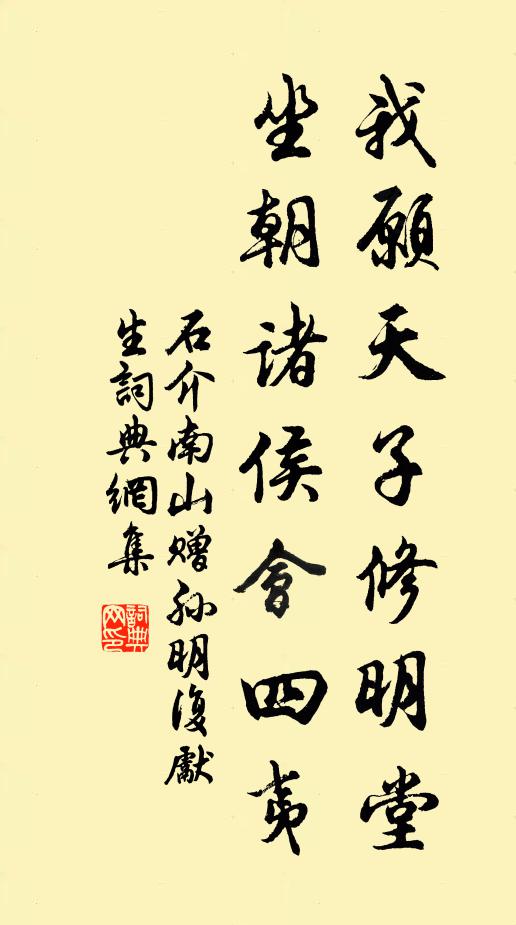 我願天子修明堂
坐朝諸侯會四夷
石介南山贈孫明復獻
生詞典網集
詞典
网印